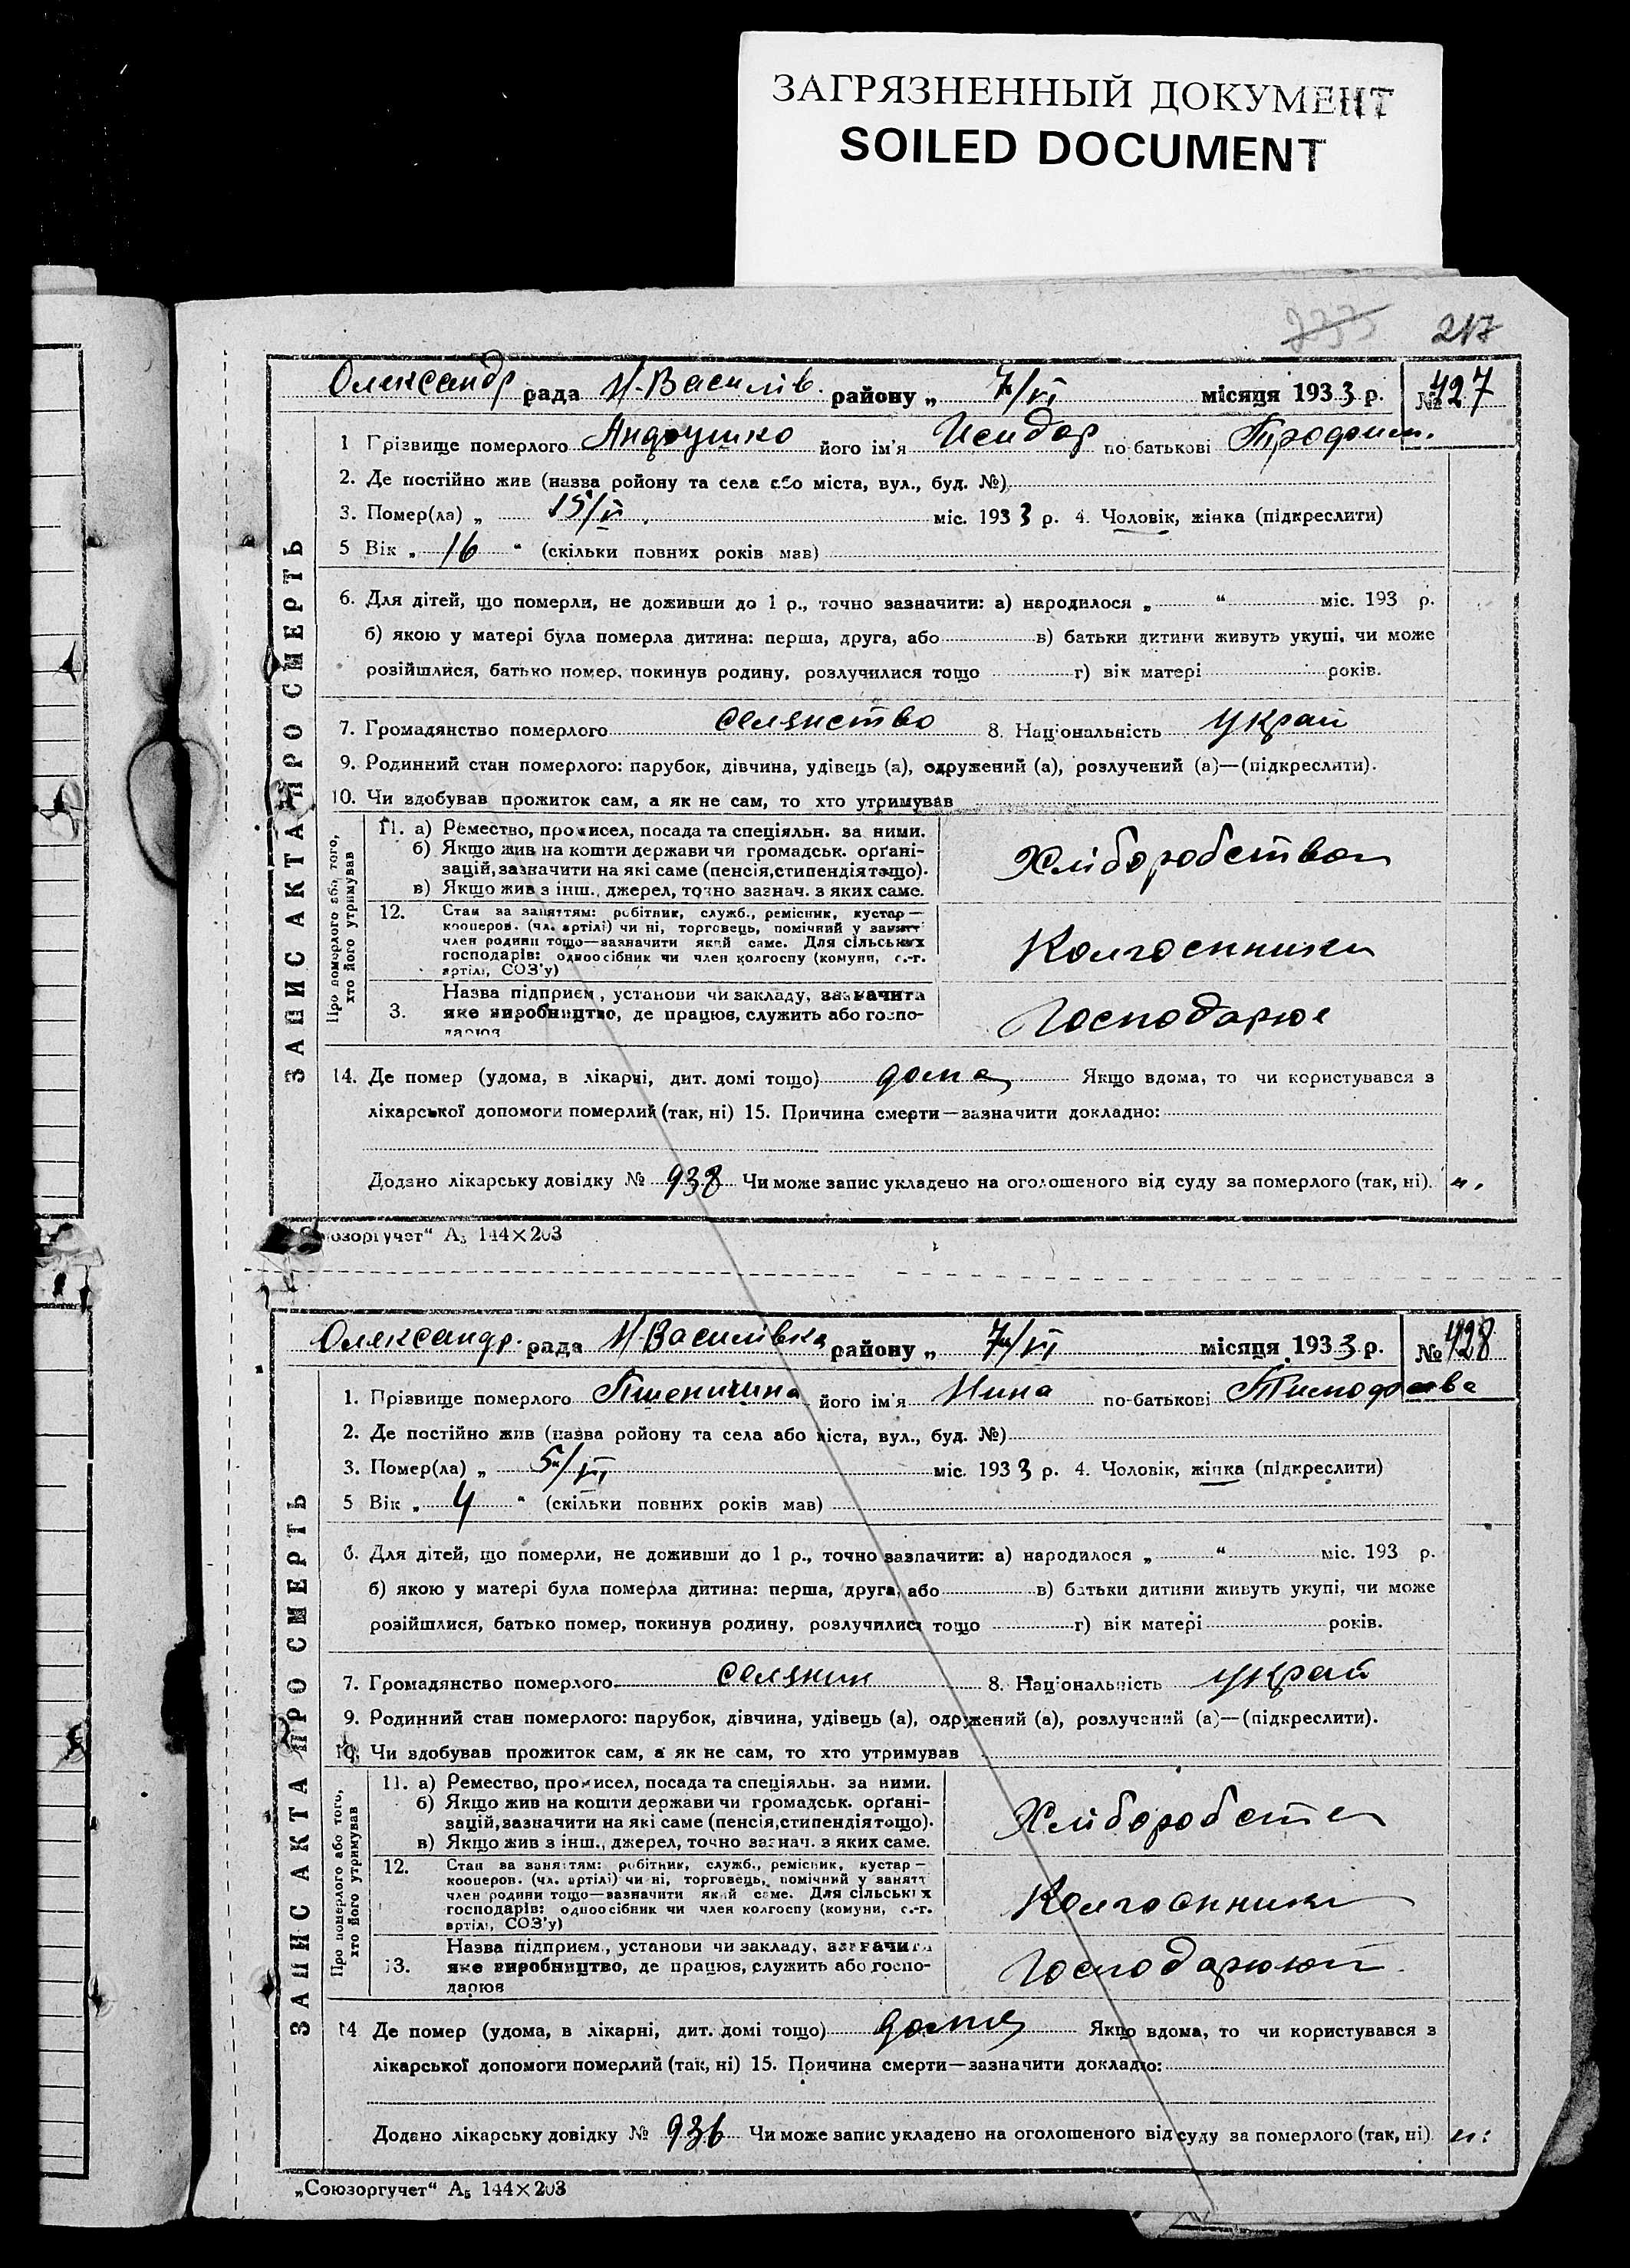 ЗАГРЯЗНЕННЫЙ ДОКУМЕНТ
SOILED DOCUMENT
217
Олександр рада Н-Василів. району „ 7/VI місяця 1933 р. № 427
1 Прізвище померлого Андрушко його ім'я Исидор по-батькові
2. Де постійно жив (назва ройону та села або міста, вул., буд. №)
3. Помер(ла) „ 15/V міс. 1933 р. 4. Чоловік, жінка (підкреслити)
5 Вік „ 16 “ (скільки повних років мав)
6. Для дітей, що померли, не доживши до 1 р., точно зазначити: а) народилося „ “ міс. 193 р.
б) якою у матері була померла дитина: перша, друга, або в) батьки дитини живуть укупі, чи може
розійшлися, батько помер, покинув родину, розлучилися тощо г) вік матері років.
7. Громадянство померлого селянство 8. Національність Украй
9. Родинний стан померлого: парубок, дівчина, удівець (а), одружений (а), розлучений (а)—(підкреслити).
10. Чи здобував прожиток сам, а як не сам, то хто утримував
Про померлого або того, хто його утримував
11. а) Ремество, промисел, посада та спеціяльн. за ними.
б) Якщо жив на кошти держави чи громадськ. орґані-
зацій, зазначити на які саме (пенсія, стипендія тощо).
в) Якщо жив з інш., джерел, точно зазнач. з яких саме.
Хліборобством
12. Стан за заняттям: робітник, служб., ремісник, кустар—
кооперов. (чл. артілі) чи ні, торговець, помічний у занятт
член родини тощо—зазначити який саме. Для сільських
господарів: одноосібник чи член колгоспу (комуни, с.-г.
артілі, СОЗ'у)
Колгоспники
3. Назва підприєм., установи чи закладу, зазначити
яке виробництво, де працює, служить або госпо-
дарює
Господарює
14. Де помер (удома, в лікарні, дит. домі тощо) дома Якщо вдома, то чи користувався з
лікарської допомоги померлий (так, ні) 15. Причина смерти—зазначити докладно:
Додано лікарську довідку № 938 Чи може запис укладено на оголошеного від суду за померлого (так, ні). н.
ЗАПИС АКТА ПРО СМЕРТЬ
оюзоргучет“ А5 144×203
Олександр. рада Н-Василівка району „ 7/VI місяця 1933 р. № 428
1. Прізвище померлого Пшенична його ім'я Нина по-батькові
2. Де постійно жив (назва ройону та села або міста, вул., буд. №)
3. Помер(ла) „ 5/III міс. 1933 р. 4. Чоловік, жінка (підкреслити)
5 Вік „ 4 “ (скільки повних років мав)
6. Для дітей, що померли, не доживши до 1 р., точно зазначити: а) народилося „ “ міс. 193 р.
б) якою у матері була померла дитина: перша, друга, або в) батьки дитини живуть укупі, чи може
розійшлися, батько помер, покинув родину, розлучилися тощо г) вік матері років.
7. Громадянство померлого селянин 8. Національність украй
9. Родинний стан померлого: парубок, дівчина, удівець (а), одружений (а), розлучений (а)—(підкреслити).
10. Чи здобував прожиток сам, а як не сам, то хто утримував
Про померлого або того, хто його утримував
11. а) Ремество, промисел, посада та спеціяльн. за ними.
б) Якщо жив на кошти держави чи громадськ. орґані-
зацій, зазначити на які саме (пенсія, стипендія тощо).
в) Якщо жив з інш., джерел, точно зазнач. з яких саме.
12. Стан за заняттям: робітник, служб., ремісник, кустар—
кооперов. (чл. артілі) чи ні, торговець, помічний у занятт
член родини тощо—зазначити який саме. Для сільських
господарів: одноосібник чи член колгоспу (комуни, с.-г.
артілі, СОЗ'у)
Колгоспники
13. Назва підприєм., установи чи закладу, зазначити
яке виробництво, де працює, служить або госпо-
дарює
Господарюют
14 Де помер (удома, в лікарні, дит. домі тощо) дома Якщо вдома, то чи користувався з
лікарської допомоги померлий (так, ні) 15. Причина смерти—зазначити докладно:
Додано лікарську довідку № 936 Чи може запис укладено на оголошеного від суду за померлого (так, ні) н.
ЗАПИС АКТА ПРО СМЕРТЬ
„Союзоргучет“ А5 144×203